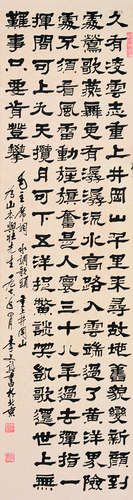 久有凌雲志重上井岡山千里來尋故地舊貌變新顏到
處鶯歌燕舞更有潺潺流水高路入雲端過了黃洋界險
處不須看風雷動旌旗奮是人寰三十八年過去彈指一
揮間可上九天攬月可下五洋捉鱉談笑凱歌還世上無
難事只要肯登攀
毛主席詞 水調歌頭 重上井岡山
山本 先生 四月 李 書於北京